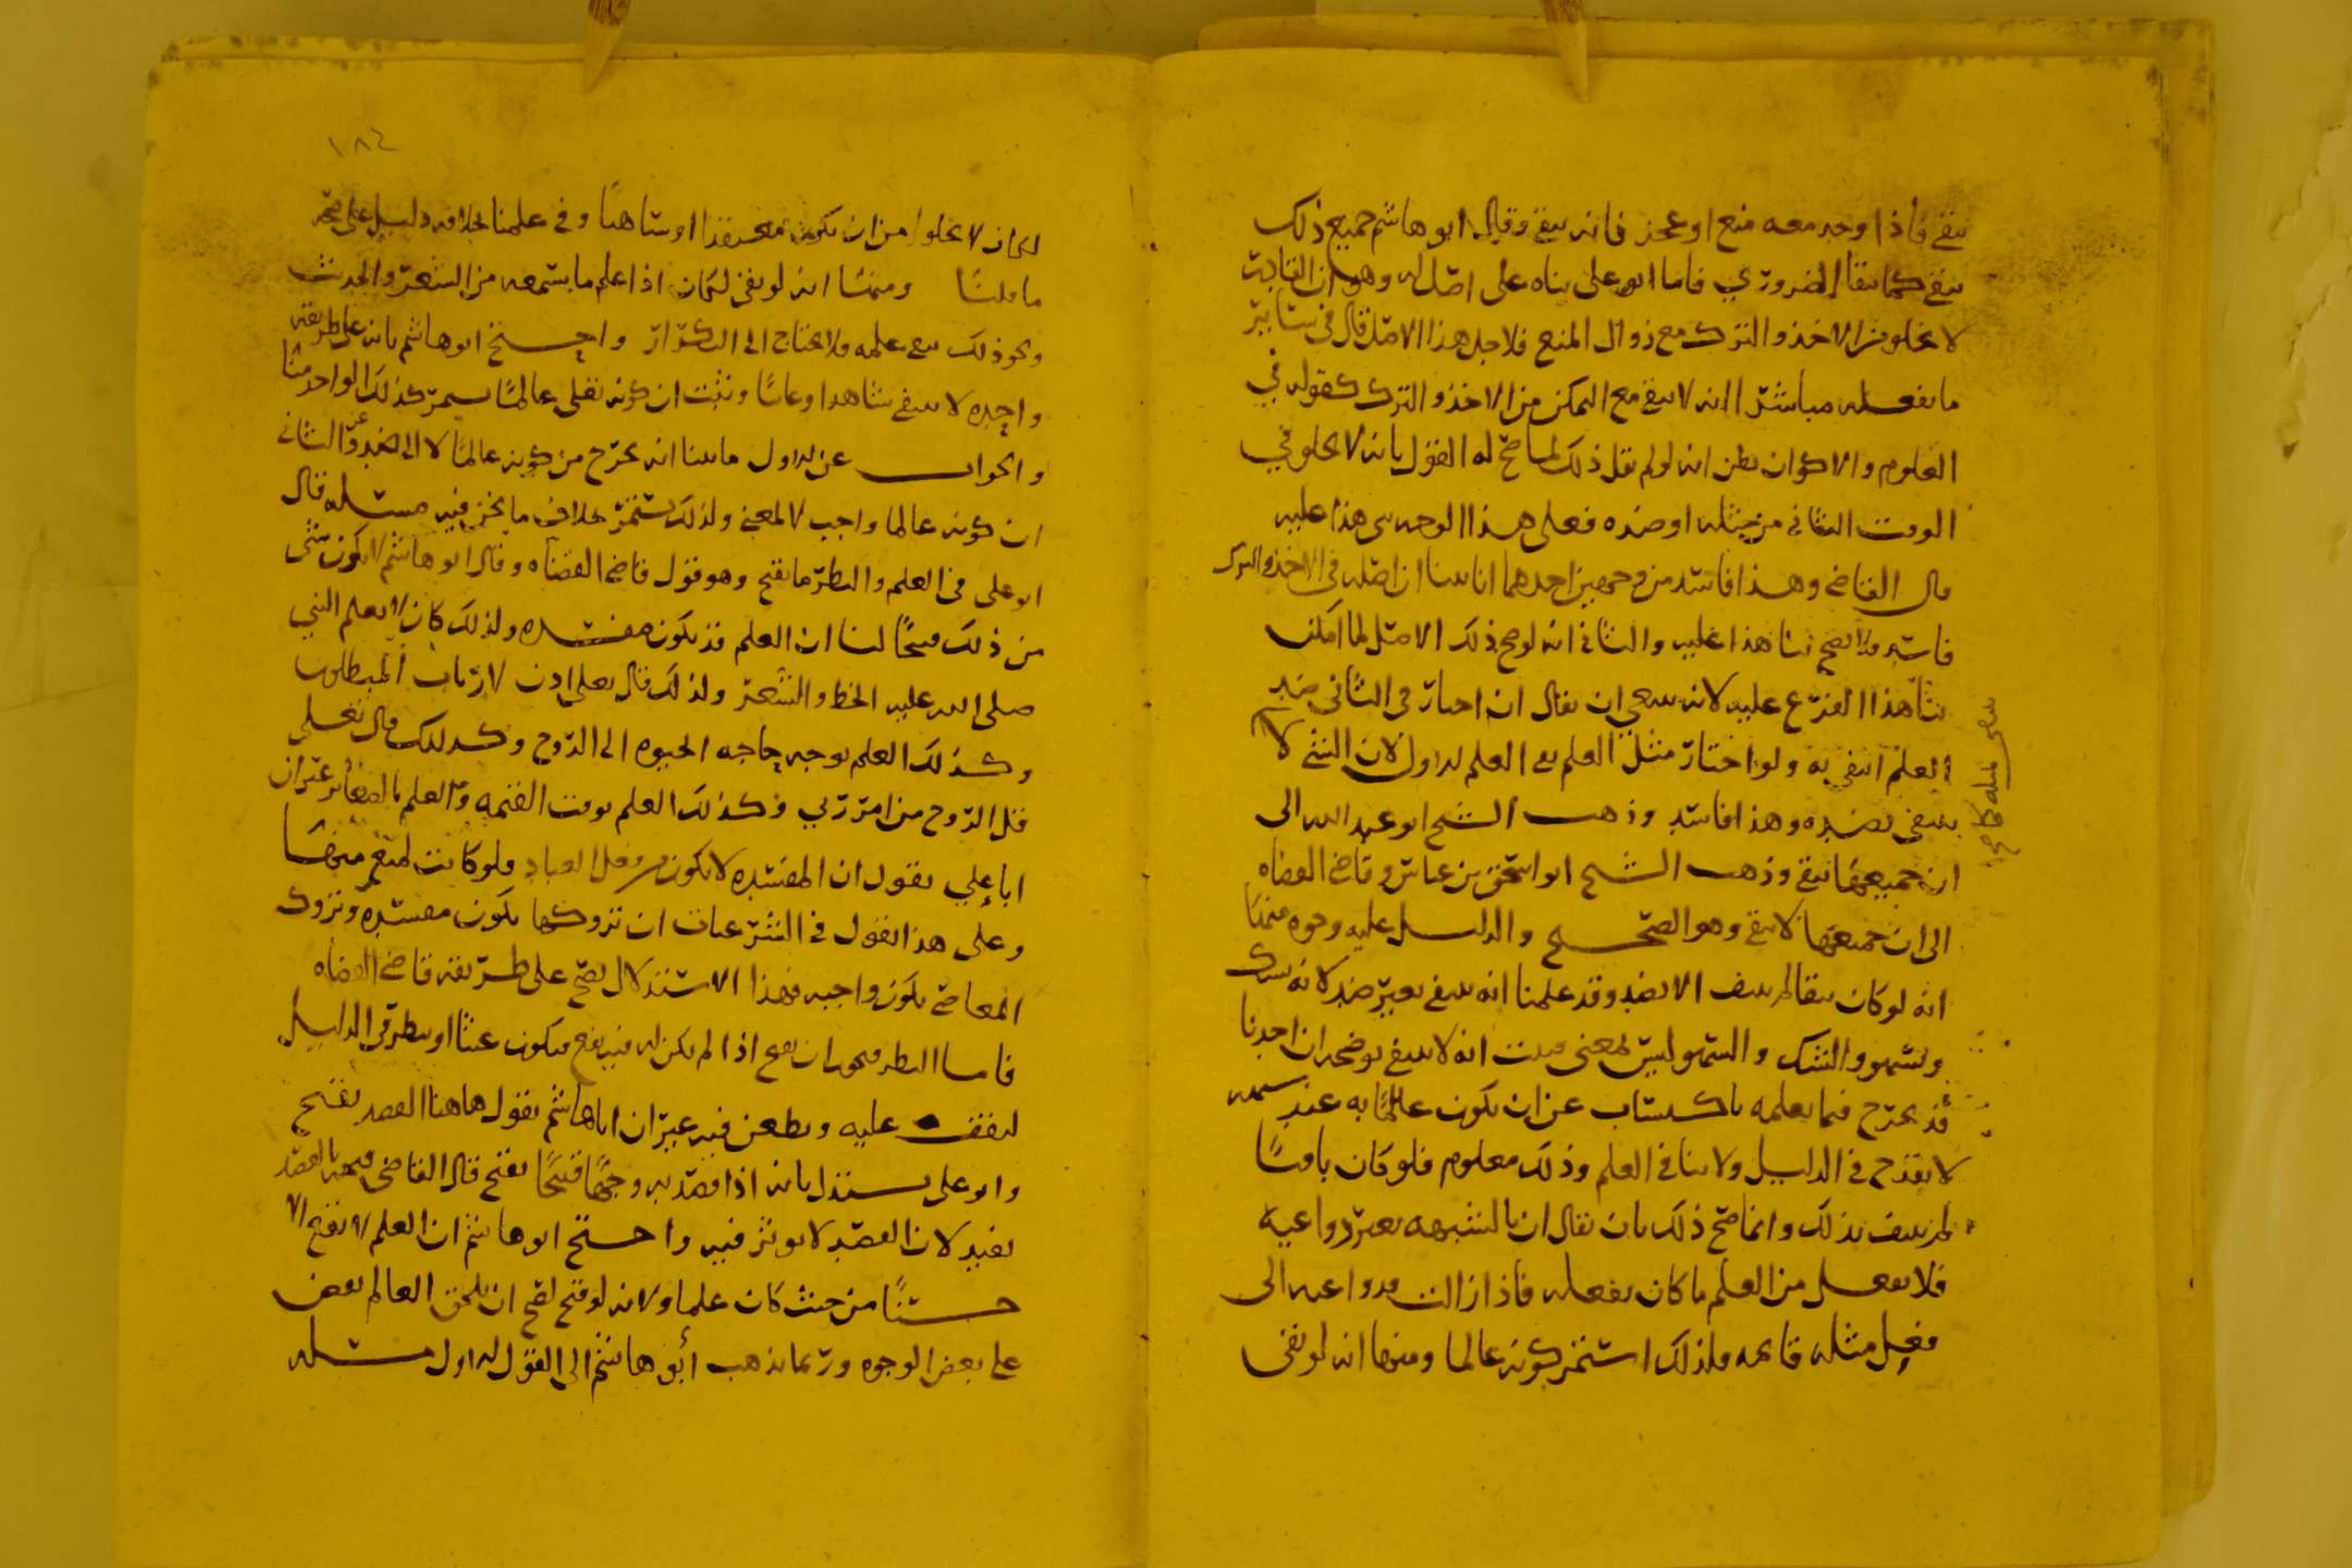 يبقى فاذا وجد معه منع او عجز فانه يبقى وقال ابو هاشم جميع ذلك
يبقى كما يبقا الضروري فاما ابو على بناه على اصل له وهو ان القادر
لا يخلو من الاخذ والترك مع زوال المنع فلاجل هذا الاصل قال في سائر
ما يفعله مباشرا انه لا يبقى مع التمكن من الاخذ والترك كقوله في
العلوم والاكوان يظن انه لو لم يقل ذلك لما صح له القول بانه لا يخلو في
الوقت الثاني من مثله او ضده فعلى هذا الوجه بنى هذا عليه
قال القاضي وهذا فاسد من وجهين احدهما انا بينا ان اصله في الاخذ والترك
فاسد فلا يصح بنا هذا عليه والثاني انه لو صح ذلك الاصل لما امكنه
بنا هذا الفرع عليه لانه ينبغي ان يقال ان اختار في الثاني ضد
العلم انتفى به ولو اختار مثل العلم بقى العلم الاول لان الشي لا
ينتفي بضده وهذا فاسد وذهب الشيخ ابو عبد الله الى
ان جميعها تبقى وذهب الشيخ ابو اسحق بن عياش وقاضي القضاه
الى ان جميعها لا يبقى وهو الصحيح والدليل عليه وجوه منها
انه لو كان يبقا لم ينتف الا بضد وقد علمنا انه ينتفي بغير ضد لانه يشك
ويسهو والشك والسهو ليس لمعنى فثبت انه لا يبقى يوضحه ان احدنا
قد يخرج فيما يعلمه باكتساب عن ان يكون عالما به عند شبهه
لا يقدح في الدليل ولا ينافي العلم وذلك معلوم فلو كان باقيا
لم ينتف بذلك وانما صح ذلك بان يقال ان بالشبهه يعتبر دواعيه
فلا يفعل من العلم ما كان يفعله فاذا زالت دواعيه الى
فعل مثله قايمه فلذلك استمر كونه عالما ومنها انه لو بقى
لكان لا يخلو من ان يكون معتقدا او ساهيا وفي علمنا بخلافه دليل على صحه
ما قلنا ومنها انه لو بقى لكان اذا علم ما يسمعه من الشعر والحديث
ونحو ذلك بقى علمه فلا يحتاج الى التكرار واحتج ابو هاشم بانه على طريقه
واحده لا ينتفي شاهدا وغايبا وثبت ان كونه تعلى عالما يستمر كذلك الواحد منا
والجواب عن الاول ما بينا انه يخرج من كونه عالما لا الى ضد وعن الثاني
ان كونه عالما واجب لا لمعنى ولذلك يستمر بخلاف ما نحن فيه مسئله قال
ابو على في العلم والنظر ما يقبح وهو قول قاضي القضاه وقال ابو هاشم لا يكون شي
من ذلك قبيحا لنا ان العلم قد يكون مفسده ولذلك كان لا يعلم النبي
صلى الله عليه الخط والشعر ولذلك قال تعلى اذن لارتاب المبطلون
وكذلك العلم بوجه حاجه الحيوه الى الروح وكذلك قال تعلى
قل الروح من امر ربي وكذلك العلم بوقت القيمه والعلم بالصغاير غير ان
ابا علي يقول ان المفسده لا يكون من فعل العباد ولو كانت لمنع منها
وعلى هذا يقول في الشرعيات ان تروكها يكون مفسده وتروك
المعاصي يكون واجبه فهذا الاستدلال يصح على طريقه قاضي القضاه
فاما النظر فيجوز ان يقبح اذا لم يكن له فيه نفع فيكون عبثا او ينظر في الدليل
ليقف عليه ويطعن فيه غير ان ابا هاشم يقول هاهنا القصد يقبح
وابو علي يستدل بانه اذا قصد به وجها قبيحا يقبح قال القاضي فهذا القصد
يفيد لان القصد لا يوثر فيه واحتج ابو هاشم ان العلم لا يقبح الا
حسنا من حيث كان علما ولانه لو قبح لقبح ان يلحق العالم بعض
على بعض الوجوه وربما يذهب أبو هاشم الى القول الاول مسئله
١٨٤